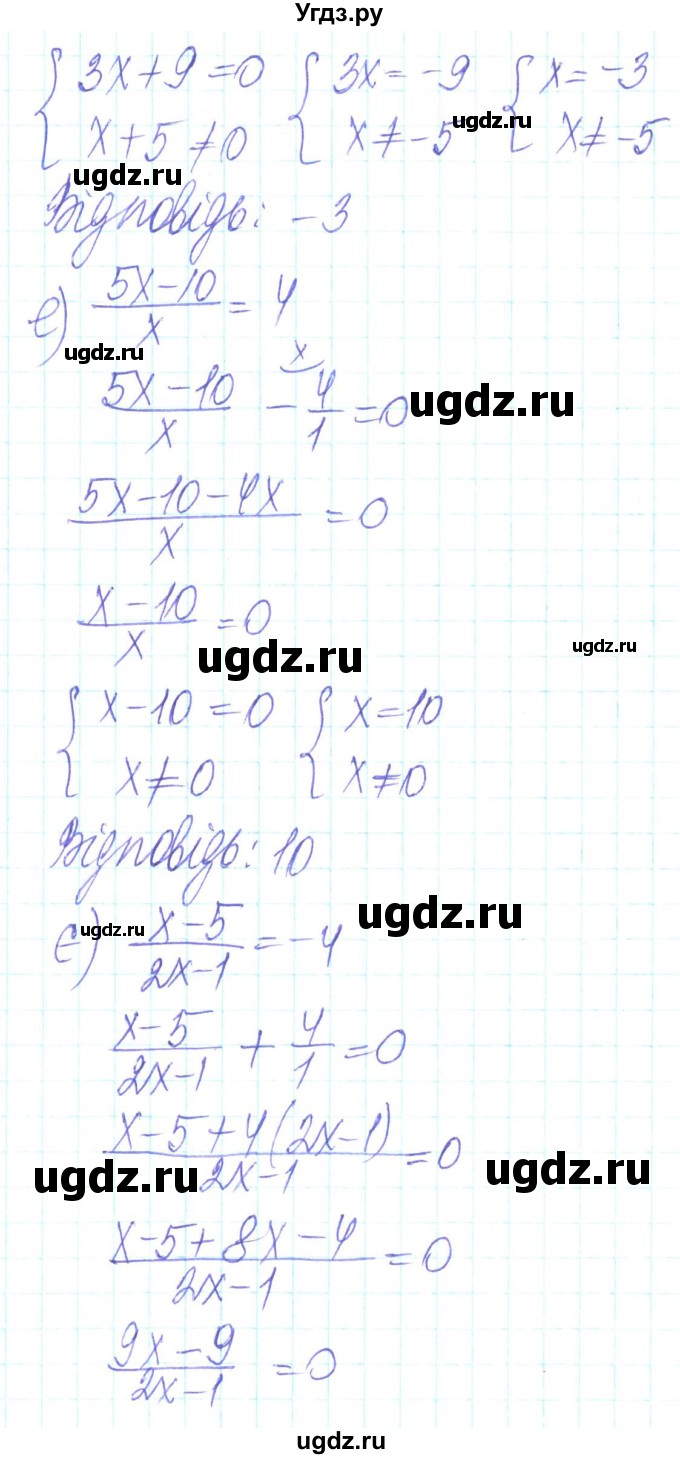 Угдз.ру
{ 3x+9=0 { 3x=-9 { x=-3
x+5≠0 x≠-5 x≠-5
ugdz.ru
ugdz.ru
Відповідь: -3
е) (5x-10)/x = 4
ugdz.ru
x
(5x-10)/x - 4/1 = 0
ugdz.ru
(5x-10-4x)/x = 0
(x-10)/x = 0
ugdz.ru
ugdz.ru
{ x-10=0 { x=10
x≠0 x≠0
Відповідь: 10
ugdz.ru
є) (x-5)/(2x-1) = -4
ugdz.ru
(x-5)/(2x-1) + 4/1 = 0
(x-5+4(2x-1))/(2x-1) = 0
ugdz.ru
ugdz.ru
(x-5+8x-4)/(2x-1) = 0
(9x-9)/(2x-1) = 0
ugdz.ru